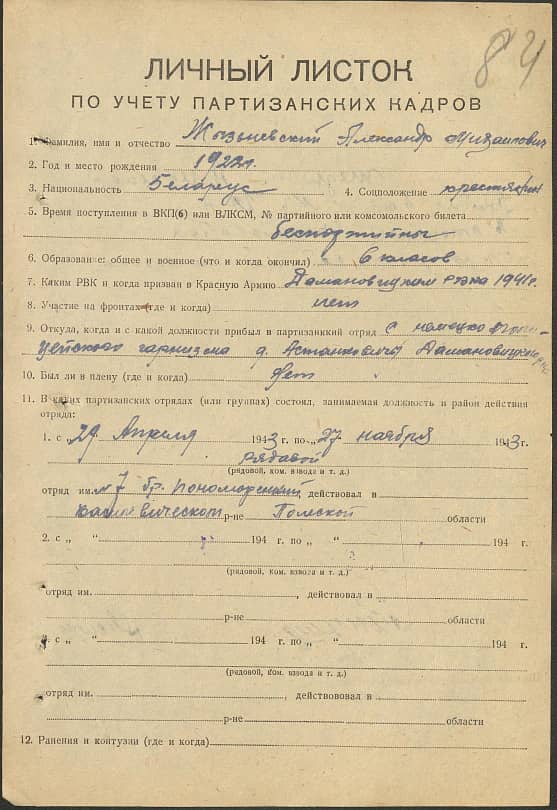 84
ЛИЧНЫЙ ЛИСТОК
ПО УЧЕТУ ПАРТИЗАНСКИХ КАДРОВ
1. Фамилия, имя и отчество Жызневский Александр Михайлович
2. Год и место рождения 1922 г.
3. Национальность Беларус 4. Соцположение крестянин
5. Время поступления в ВКП(б) или ВЛКСМ, № партийного или комсомольского билета
беспартийны
6. Образование: общее и военное (что и когда окончил) 6 класов
7. Каким РВК и когда призван в Красную Армию Дамановицким 1941 г.
8. Участие на фронтах (где и когда) нет
9. Откуда, когда и с какой должности прибыл в партизанский отряд с немецко
гарнизона д. Астанковичы Дамановицкого
10. Был ли в плену (где и когда) Нет
11. В каких партизанских отрядах (или группах) состоял, занимаемая должность и район действия
отряда:
1. с „29 Апреля 1943 г. по „27 ноября 1943 г.
рядавой
(рядовой, ком. взвода и т. д.)
отряд им. № 7 бр. действовал в
р-не Полской области
2. с „ “ 194 г. по „ “ 194 г.
(рядовой, ком. взвода и т. д.)
отряд им. , действовал в
р-не области
с „ “ 194 г. по „ “ 194 г.
(рядовой, ком. взвода и т. д.)
отряд им. , действововал в
р-не области
12. Ранения и контузии (где и когда)